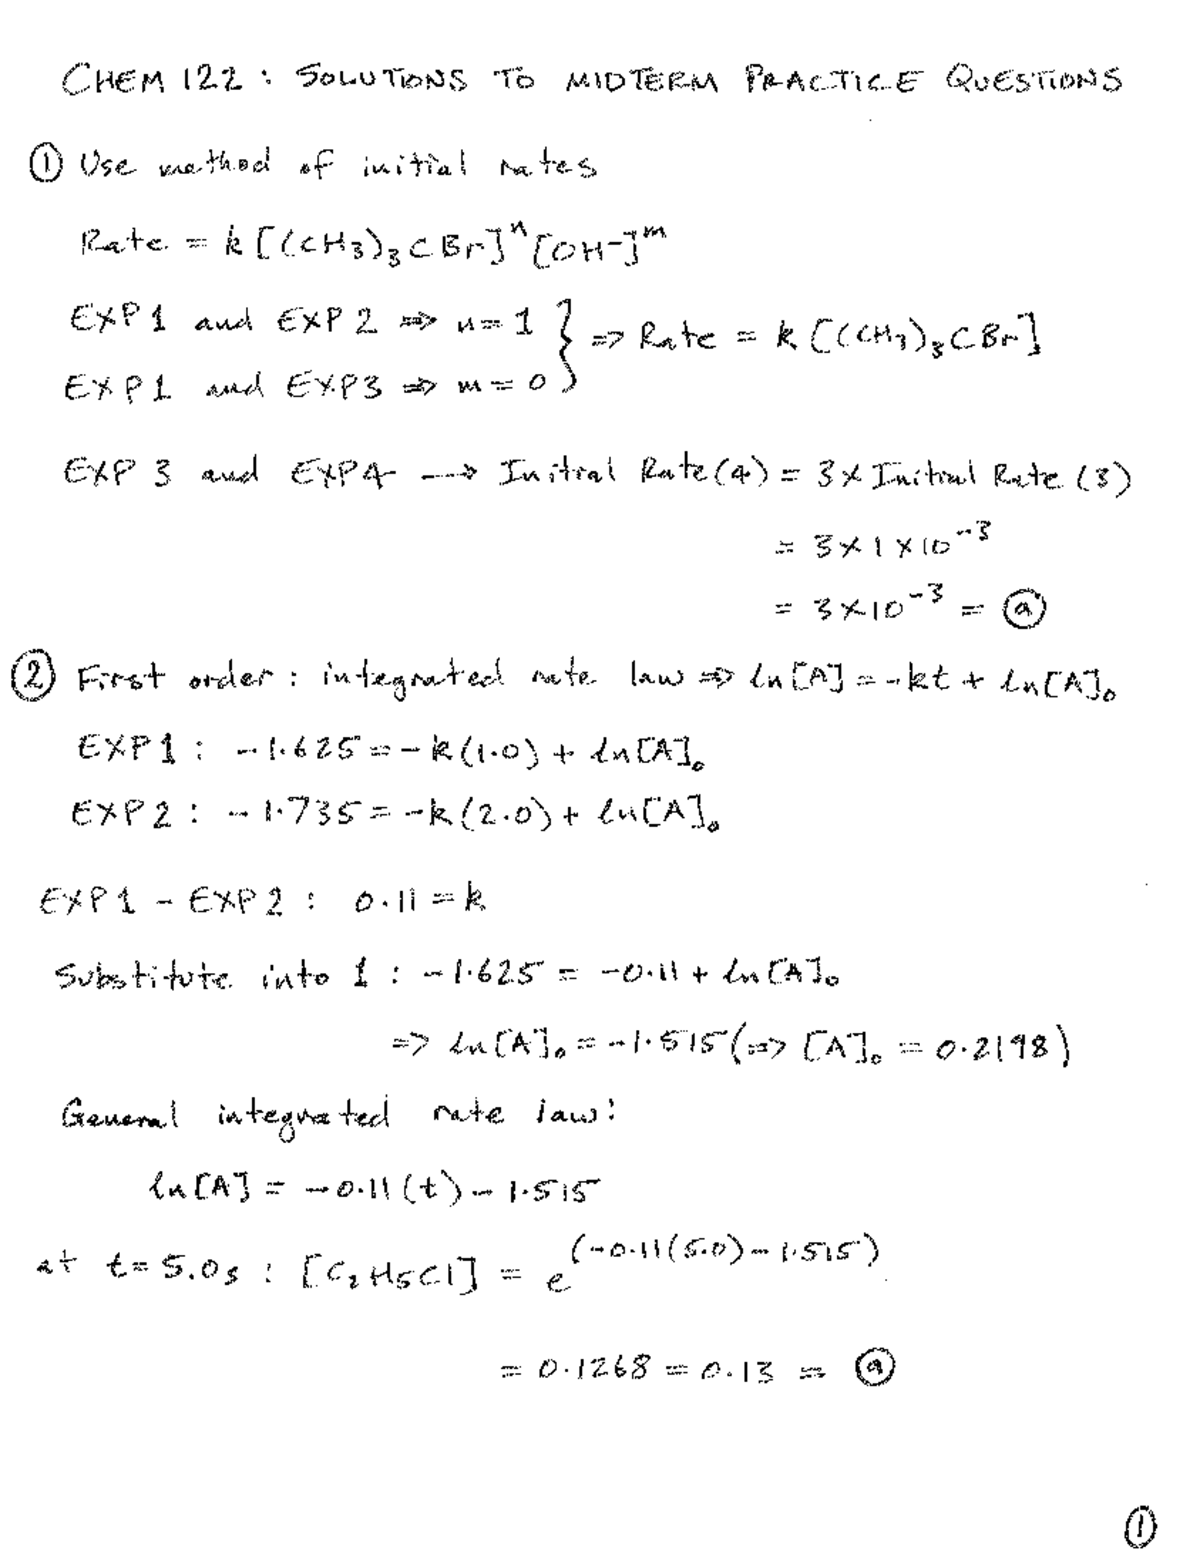 CHEM 122 : SOLUTIONS TO MIDTERM PRACTICE QUESTIONS
① Use method of initial rates
Rate = k [(CH₃)₃CBr]ⁿ [OH⁻]ᵐ
EXP 1 and EXP 2 ⇒ n = 1 } ⇒ Rate = k [(CH₃)₃CBr]
EXP 1 and EXP3 ⇒ m = 0
EXP 3 and EXP4 → Initial Rate (4) = 3 × Initial Rate (3)
= 3 × 1 × 10⁻³
= 3 × 10⁻³ = ⓐ
② First order : integrated rate law ⇒ ln[A] = -kt + ln[A]₀
EXP1 : -1.625 = -k(1.0) + ln[A]₀
EXP2 : -1.735 = -k(2.0) + ln[A]₀
EXP1 - EXP2 : 0.11 = k
Substitute into 1 : -1.625 = -0.11 + ln[A]₀
⇒ ln[A]₀ = -1.515 (⇒ [A]₀ = 0.2198)
General integrated rate law:
ln[A] = -0.11(t) - 1.515
at t = 5.0s : [C₂H₅Cl] = e^(-0.11(5.0) - 1.515)
= 0.1268 = 0.13 = ⓐ
①